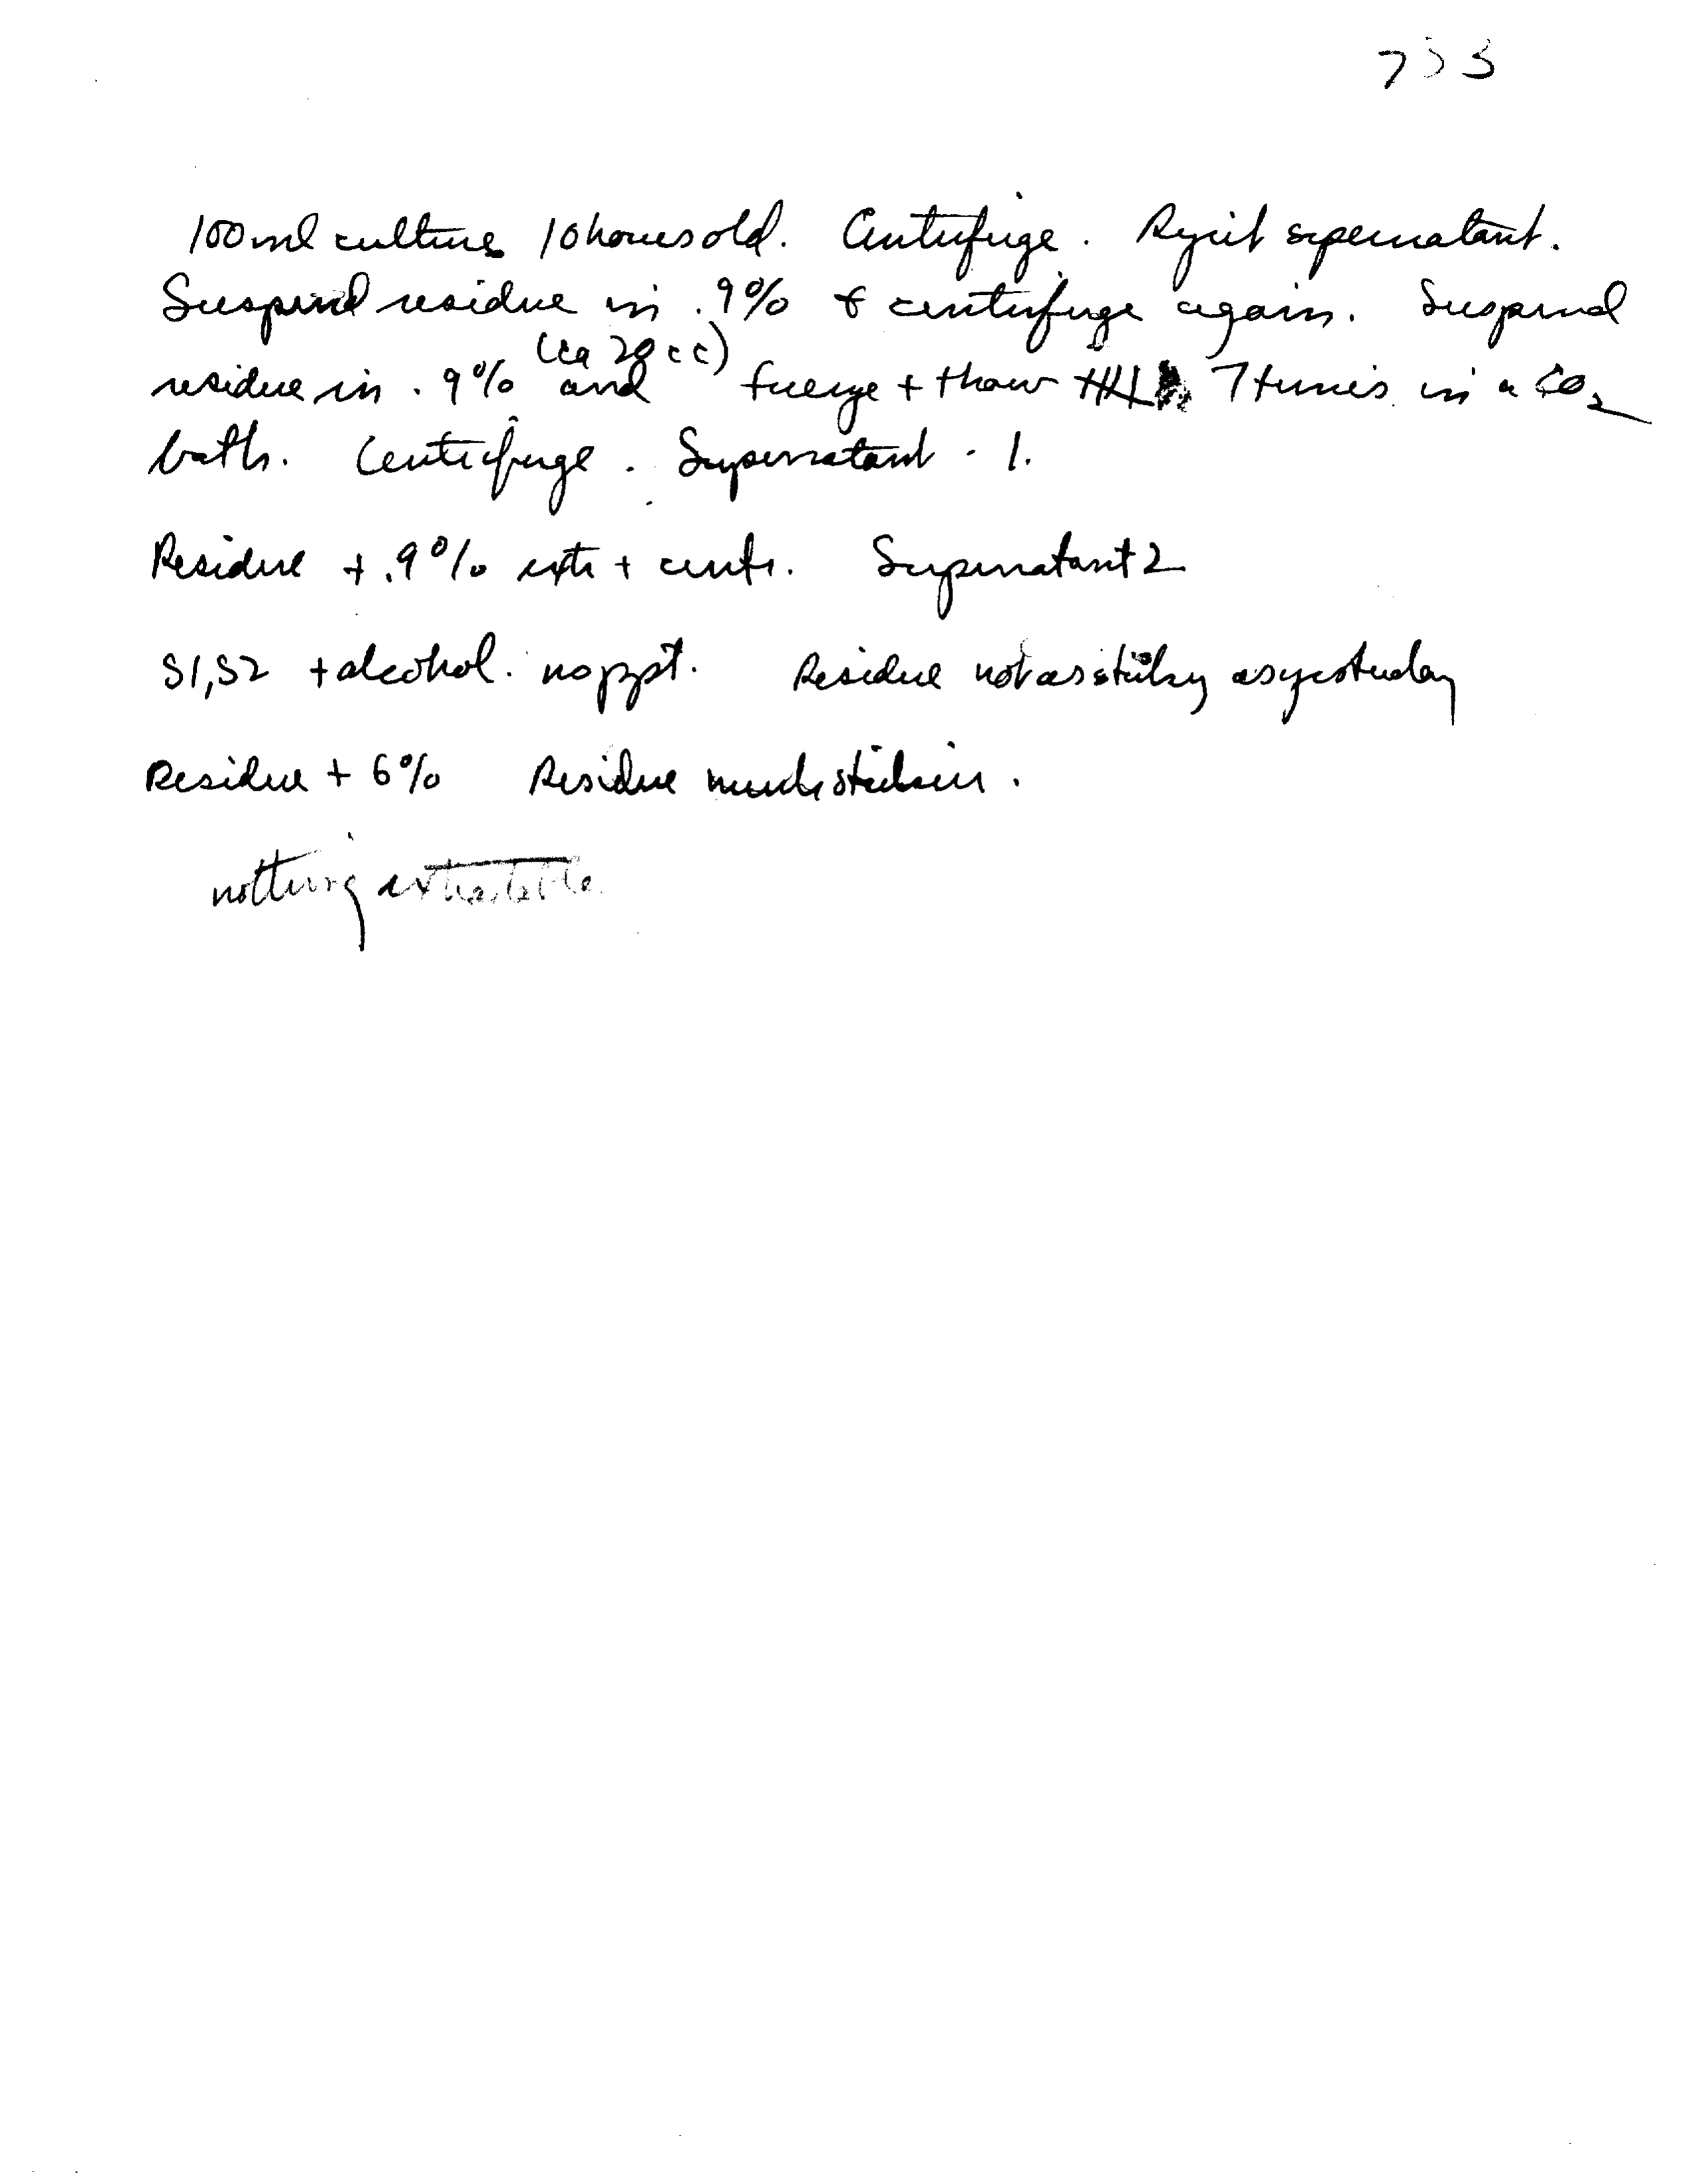 733
100 ml culture 10 hours old. Centrifuge. Reject supernatant.
Suspend residue in .9% & centrifuge again. Suspend
(ca 20 cc)
residue in .9% and freeze + thaw 7 times in a CO2
bath. Centrifuge. Supernatant - 1.
Residue + .9% extr + centr. Supernatant 2
S1, S2 + alcohol. no ppt. Residue not as sticky as yesterday
Residue + 6% Residue much stickier.
nothing extractable